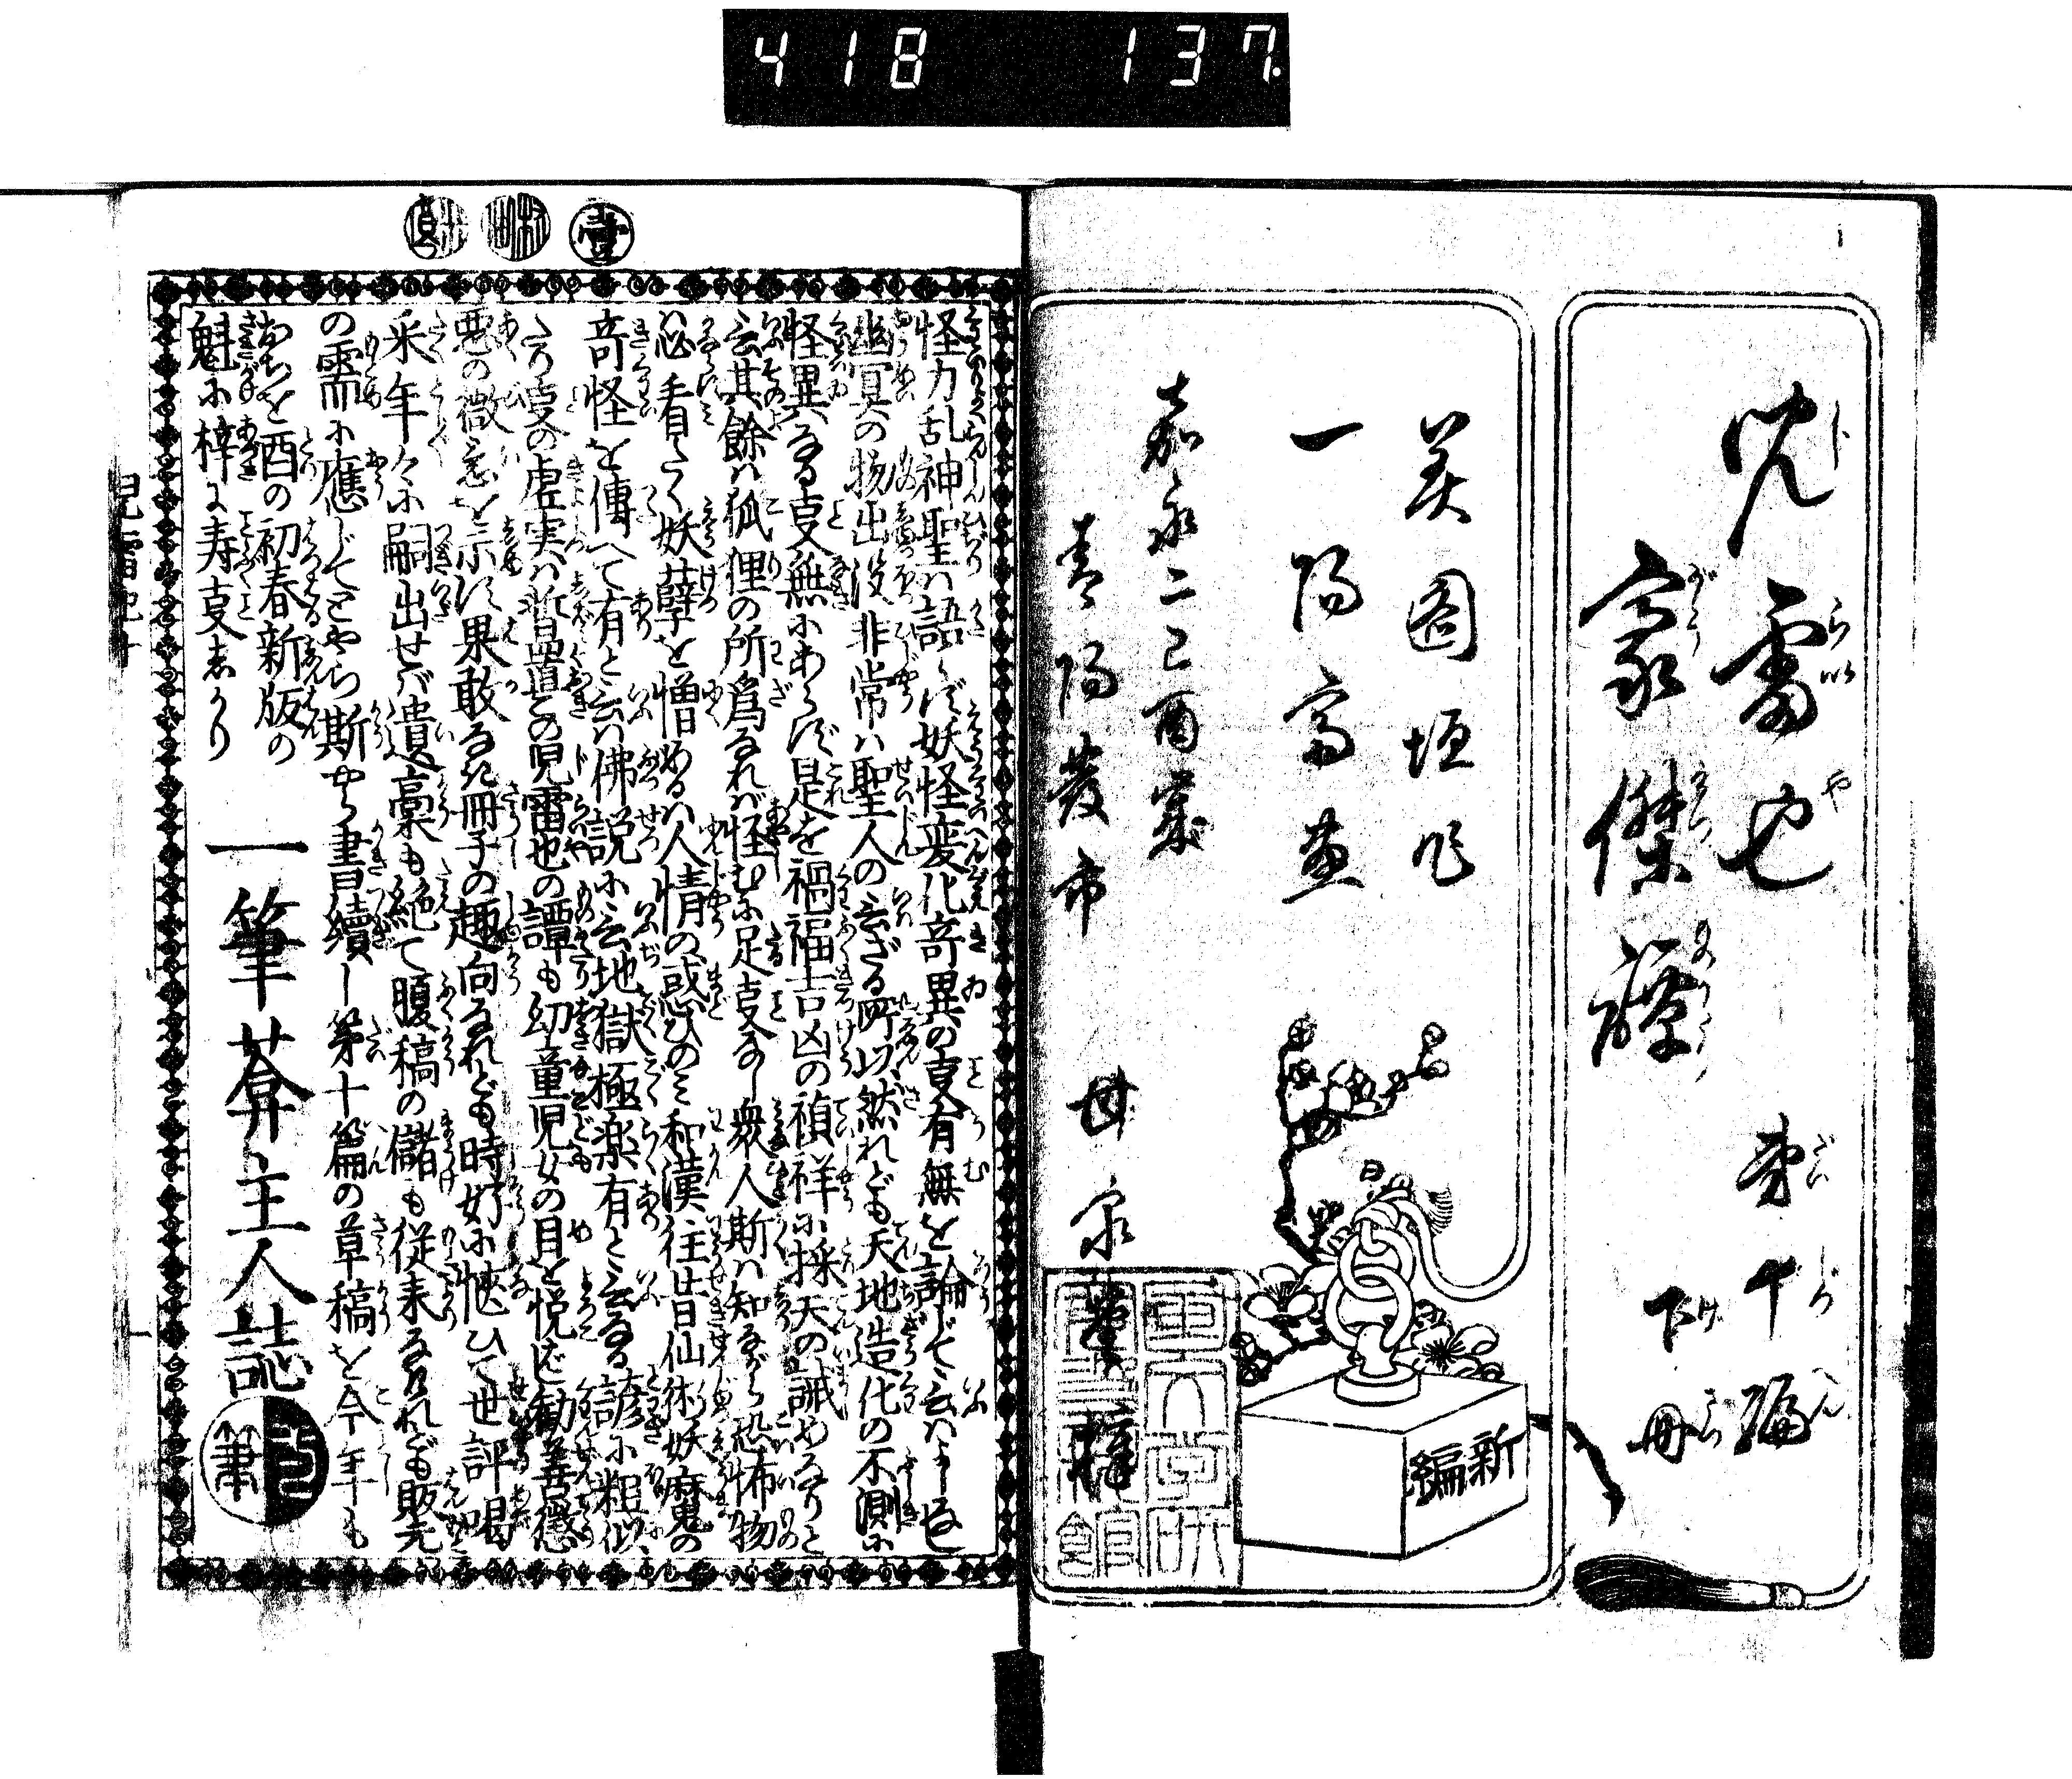 418 137.
児雷也
豪傑譚
第十編
下冊
美図垣作
一陽斎画
嘉永二己酉歳
青陽發市
甘泉堂梓
新編
壹
怪力乱神聖ハ語らず妖怪変化竒異の㕝有無を論じて云ハ
幽冥の物出没非常ハ聖人の云ざる所以然れども天地造化の不測に
怪異なる㕝無にあらず是を禍福吉凶の禎祥に採天の誡めなりと
云其餘ハ狐狸の所爲なれバ怪むに足㕝なし衆人斯ハ知ながら恐怖物
ハ必看たく妖孽を憎めるハ人情の惑ひのミ和漢往昔仙術妖魔の
竒怪を傳へて有と云ハ佛説に云地獄極楽有と云る諺に粗似
たり㕝の虚実ハ暫置その児雷也の譚も幼童児女の目を悦バせ勧善懲
悪の微意を示す果敢なき冊子の趣向なれども時好に愜ひて世評喝
采年々に嗣出せバ遺稾も絶て腹稿の儲も従来なけれども販元
の需に應じてとやら斯やら書續し第十篇の草稿を今年も
おちを酉の初春新版の
魁に梓に寿㕝しかり
一筆葊主人誌